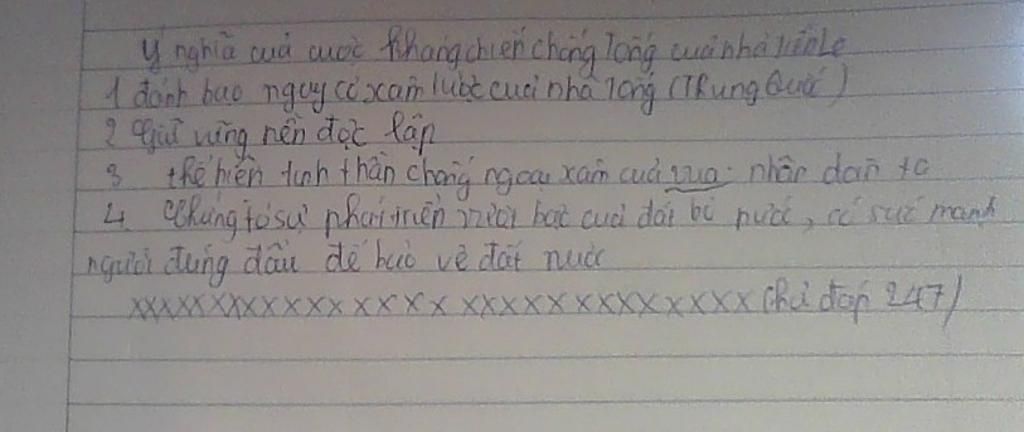 ý nghĩa cuả cuộc kháng chiến chống Tống cuả nhà tiền Lê
1 đánh bao nguy cơ xâm lược cuả nhà Tống (Trung Quốc)
2 Giữ vững nền độc lập
3 thể hiện tinh thần chống ngoại xâm cuả vua nhân dân ta
4. Chứng tỏ sự phát triển bậc cuả đất nước, có sức mạnh
người đứng đầu để bảo vệ đất nước
xxxxxxxxxxxxxxxxxxxxxxxxxxxx (hỏi đáp 247)